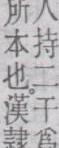 人持二干爲
所本也。漢隷